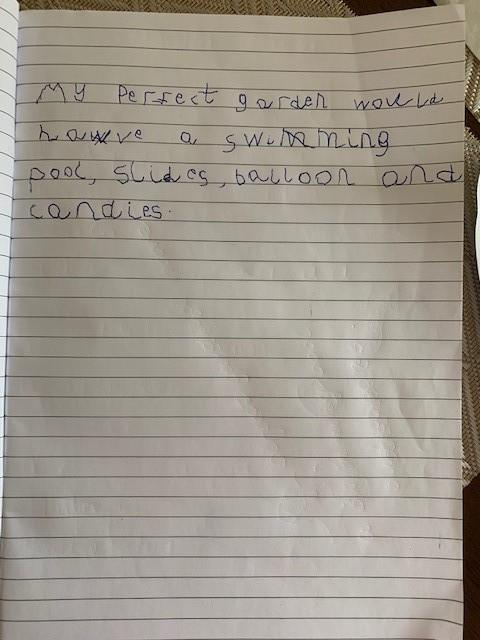 My Perfect garden would
have a swimming
pool, slides, balloon and
candies.